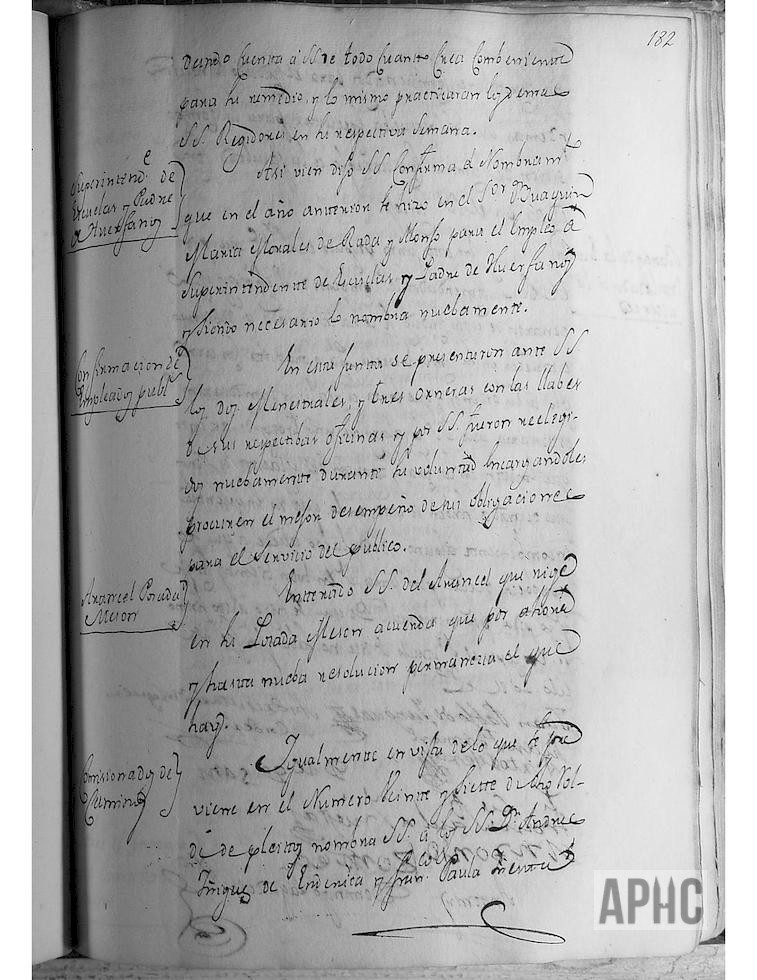 182
dando cuenta á SS de todo cuanto crea combeniente
para su remedio, y lo mismo practicaran los demas
SS. Regidores en su respectiva semana.
Superintend.e de
Escuelas y Padre
de Huerfanos
Asi vien dijo SS Confirma el Nombram.to
que en el año anterior se hizo en el S.or D.n Juaquin
Maria Morales de Rada y Monso para el Empleo de
Superintendente de Escuelas y Padre de Huerfanos
y siendo necesario lo nombra nuebamente.
Confirmacion de
Empleados publ.s
En esta Junta se presentaron ante SS
los dos Menestrales, y tres orneras con las llabes
de sus respectibas oficinas y por SS. fueron reelegi-
dos nuebamente durante su voluntad encargandoles
procuren el mejor desempeño de sus obligaciones
para el servicio del publico.
Arancel Posada
Meson
Enterado SS. del Arancel que rige
en la Posada Meson acuerda que por ahora
y hasta nueba resolucion permanezca el que
hay.
Comisionados de
Caminos
Igualmente en vista de lo que se pre
viene en el Numero Veinte y siette de el
de pleitos nombra SS. a los SS. D.n Andres
de y Fran.co Paula
APHC